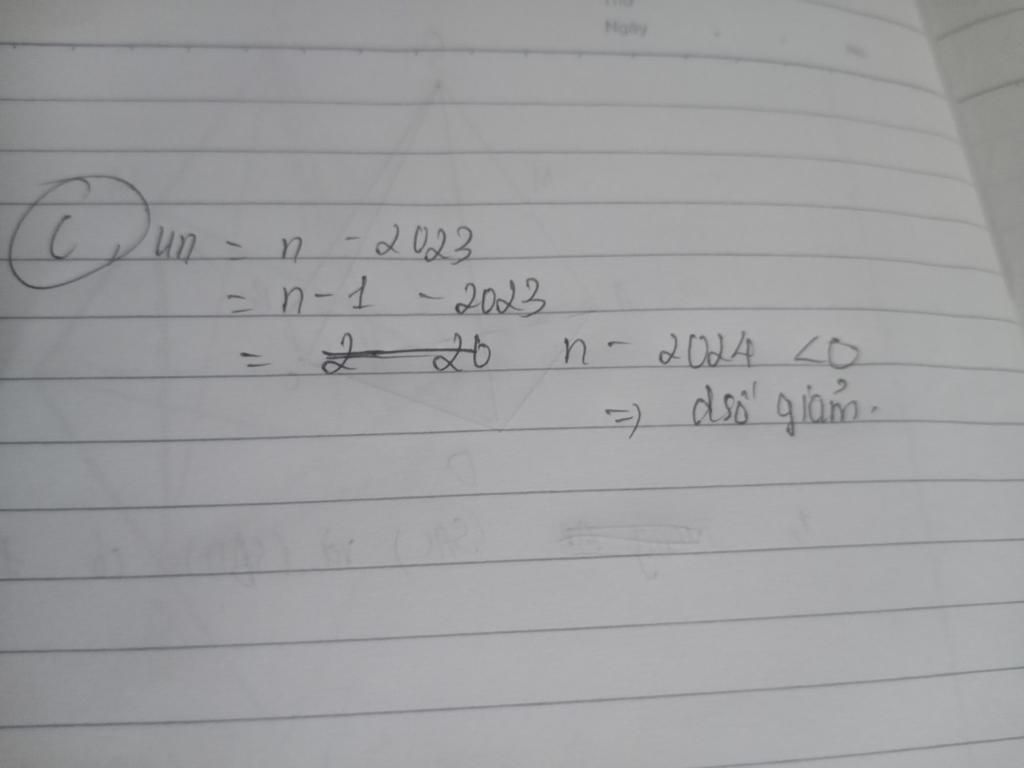 Ngày
C, un = n - 2023
= n - 1 - 2023
= n - 2024 < 0
=> dsố giảm.